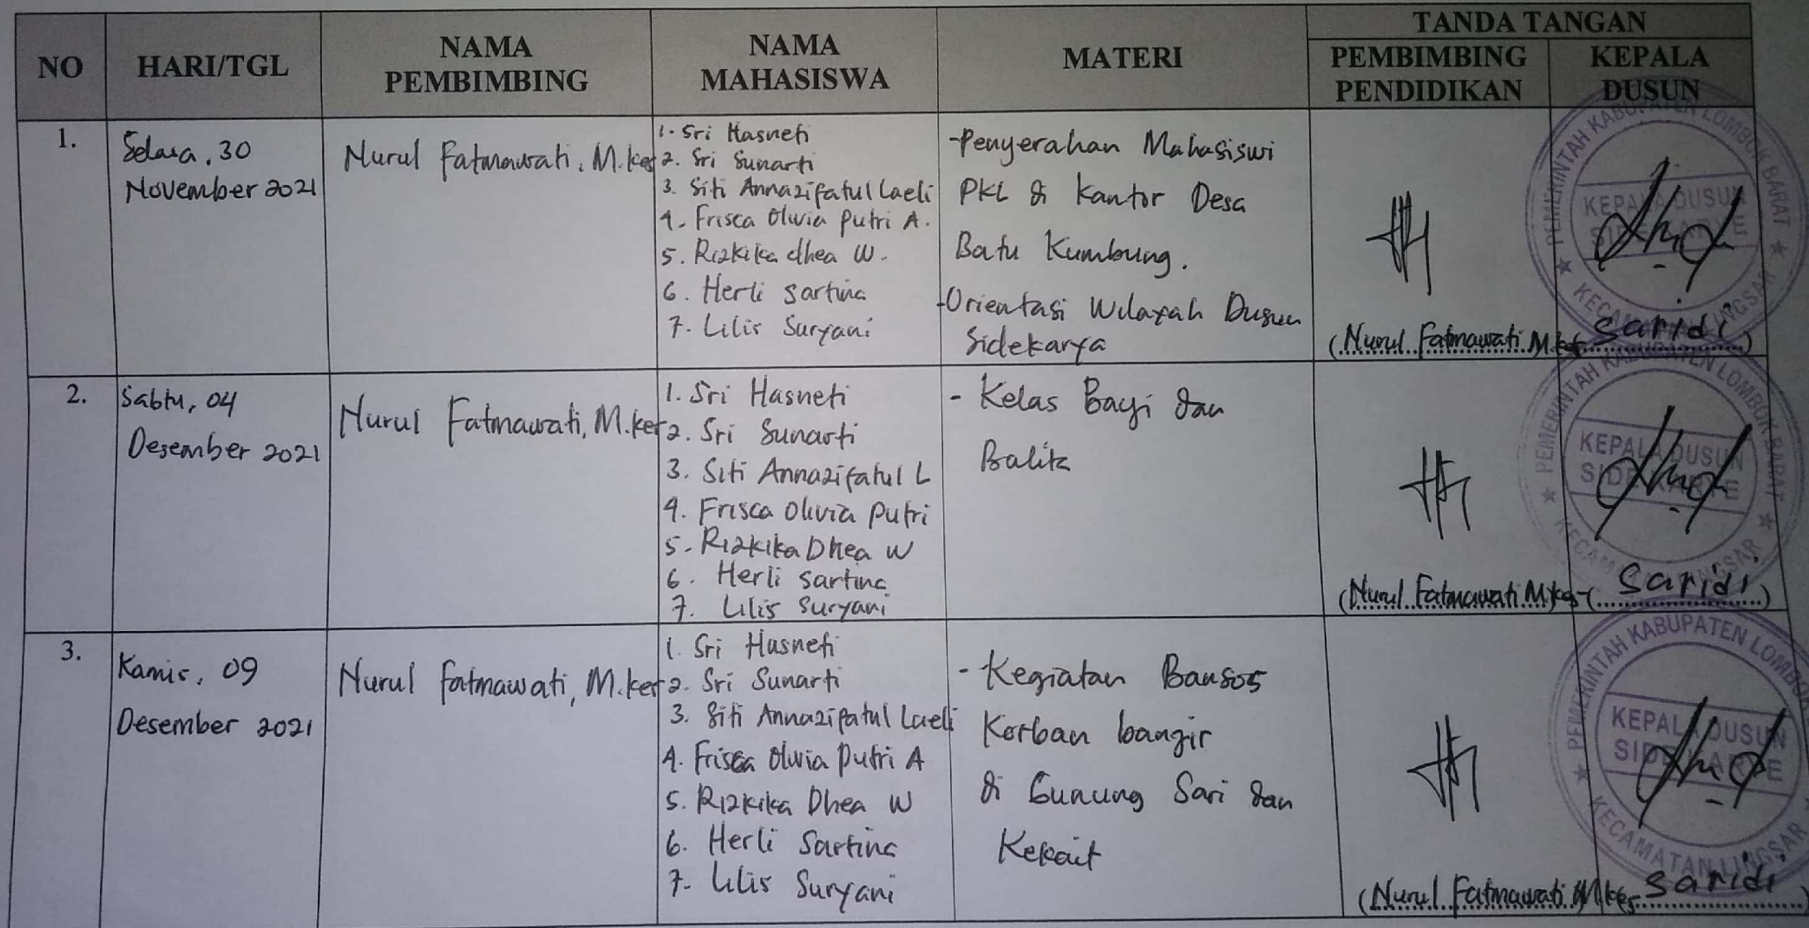 NO
HARI/TGL
NAMA
PEMBIMBING
NAMA
MAHASISWA
MATERI
TANDA TANGAN
PEMBIMBING
PENDIDIKAN
KEPALA
DUSUN
1.
Selasa, 30
November 2021
Nurul Fatmawati, M.kes
1. Sri Hasneti
2. Sri Sunarti
3. Siti Annazifatul Laeli
4. Frisca Olivia Putri A.
5. Rizkika dhea W.
6. Herli Sartina
7. Lilis Suryani
-Penyerahan Mahasiswi
PKL di Kantor Desa
Batu Kumbung.
-Orientasi Wilayah Dusun
Sidekarya
(Nurul Fatmawati M.kes
Saridi)
PEMERINTAH KABUPATEN LOMBOK BARAT
KEPALA DUSUN
KECAMATAN LINGSAR
2.
Sabtu, 04
Desember 2021
Nurul Fatmawati, M.kes
1. Sri Hasneti
2. Sri Sunarti
3. Siti Annazifatul L
4. Frisca Olivia Putri
5. Rizkika Dhea W
6. Herli Sartina
7. Lilis Suryani
- Kelas Bayi dan
Balita
(Nurul Fatmawati M.kes
(Saridi)
PEMERINTAH KABUPATEN LOMBOK BARAT
KEPALA DUSUN
KECAMATAN LINGSAR
3.
Kamis, 09
Desember 2021
Nurul Fatmawati, M.kes
1. Sri Hasneti
2. Sri Sunarti
3. Siti Annazifatul Laeli
4. Frisca Olivia Putri A
5. Rizkika Dhea W
6. Herli Sartina
7. Lilis Suryani
- Kegiatan Bansos
Korban bangir
di Gunung Sari dan
Kekait
(Nurul Fatmawati M.kes
Saridi)
PEMERINTAH KABUPATEN LOMBOK
KEPALA DUSUN
KECAMATAN LINGSAR